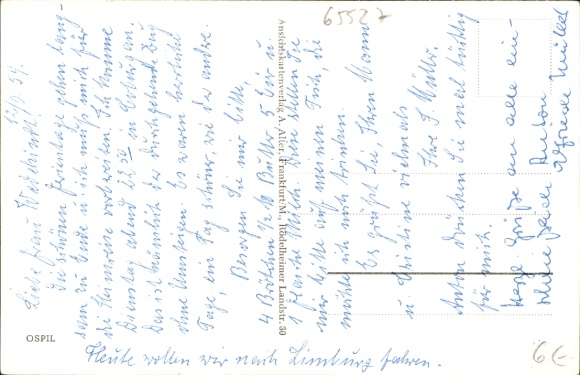 65527
12/9. 54.
Liebe Frau Wedekind!
Die schönen Ferientage gehen lang-
sam zu Ende u. ich muß mich für
die Heimreise vorbereiten. Ich komme
Dienstag abend 22 30 in Coburg an,
Das ist nämlich der durchgehende Zug
ohne Umsteigen. Es waren herrliche
Tage, ein Tag schöner, wie der andre.
Besorgen Sie mir bitte,
4 Brötchen 1/2 Butter 5 Eier u.
1 Flasche Milch. Den stellen Sie
mir bitte auf meinen Tisch, die
möchte ich noch trinken.
Es grüßt Sie, Ihren Mann
u. Christine vielmals
Ihre F. Müller.
Anton drücken Sie mal tüchtig
für mich.
Herzl. Grüße an alle
Anton
Müller
Ansichtskartenverlag A. Alter, Frankfurt/M., Rödelheimer Landstr. 80
OSPIL
Heute wollen wir nach Limburg fahren.
6€-